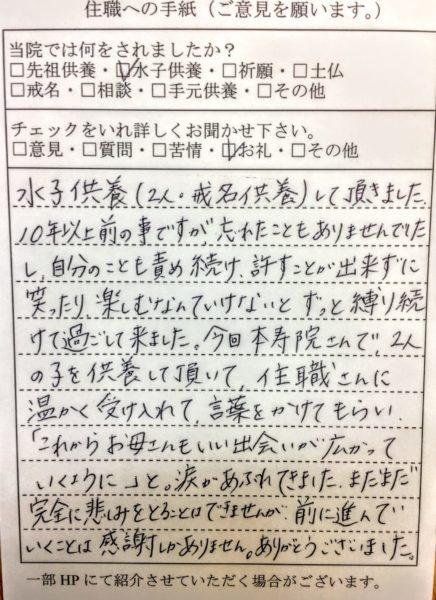 住職への手紙（ご意見を願います。）
当院では何をされましたか？
□先祖供養・☑水子供養・□祈願・□土仏
□戒名・□相談・□手元供養・□その他
チェックをいれ詳しくお聞かせ下さい。
□意見・□質問・□苦情・☑お礼・□その他
水子供養（2人・戒名供養）して頂きました。
10年以上前の事ですが、忘れたこともありませんでした
し、自分のことも責め続け、許すことが出来ずに
笑ったり、楽しむなんていけないと ずっと縛り続
けて過ごして来ました。今回本寿院さんで、2人
の子を供養して頂いて、住職さんに
温かく受け入れて、言葉をかけてもらい、
「これからお母さんもいい出会いが広がって
いくように」と。涙があふれてきました。まだまだ
完全に悲しみをとることはできませんが、前に進んで
いくことは感謝しかありません。ありがとうございました。
一部HPにて紹介させていただく場合がございます。